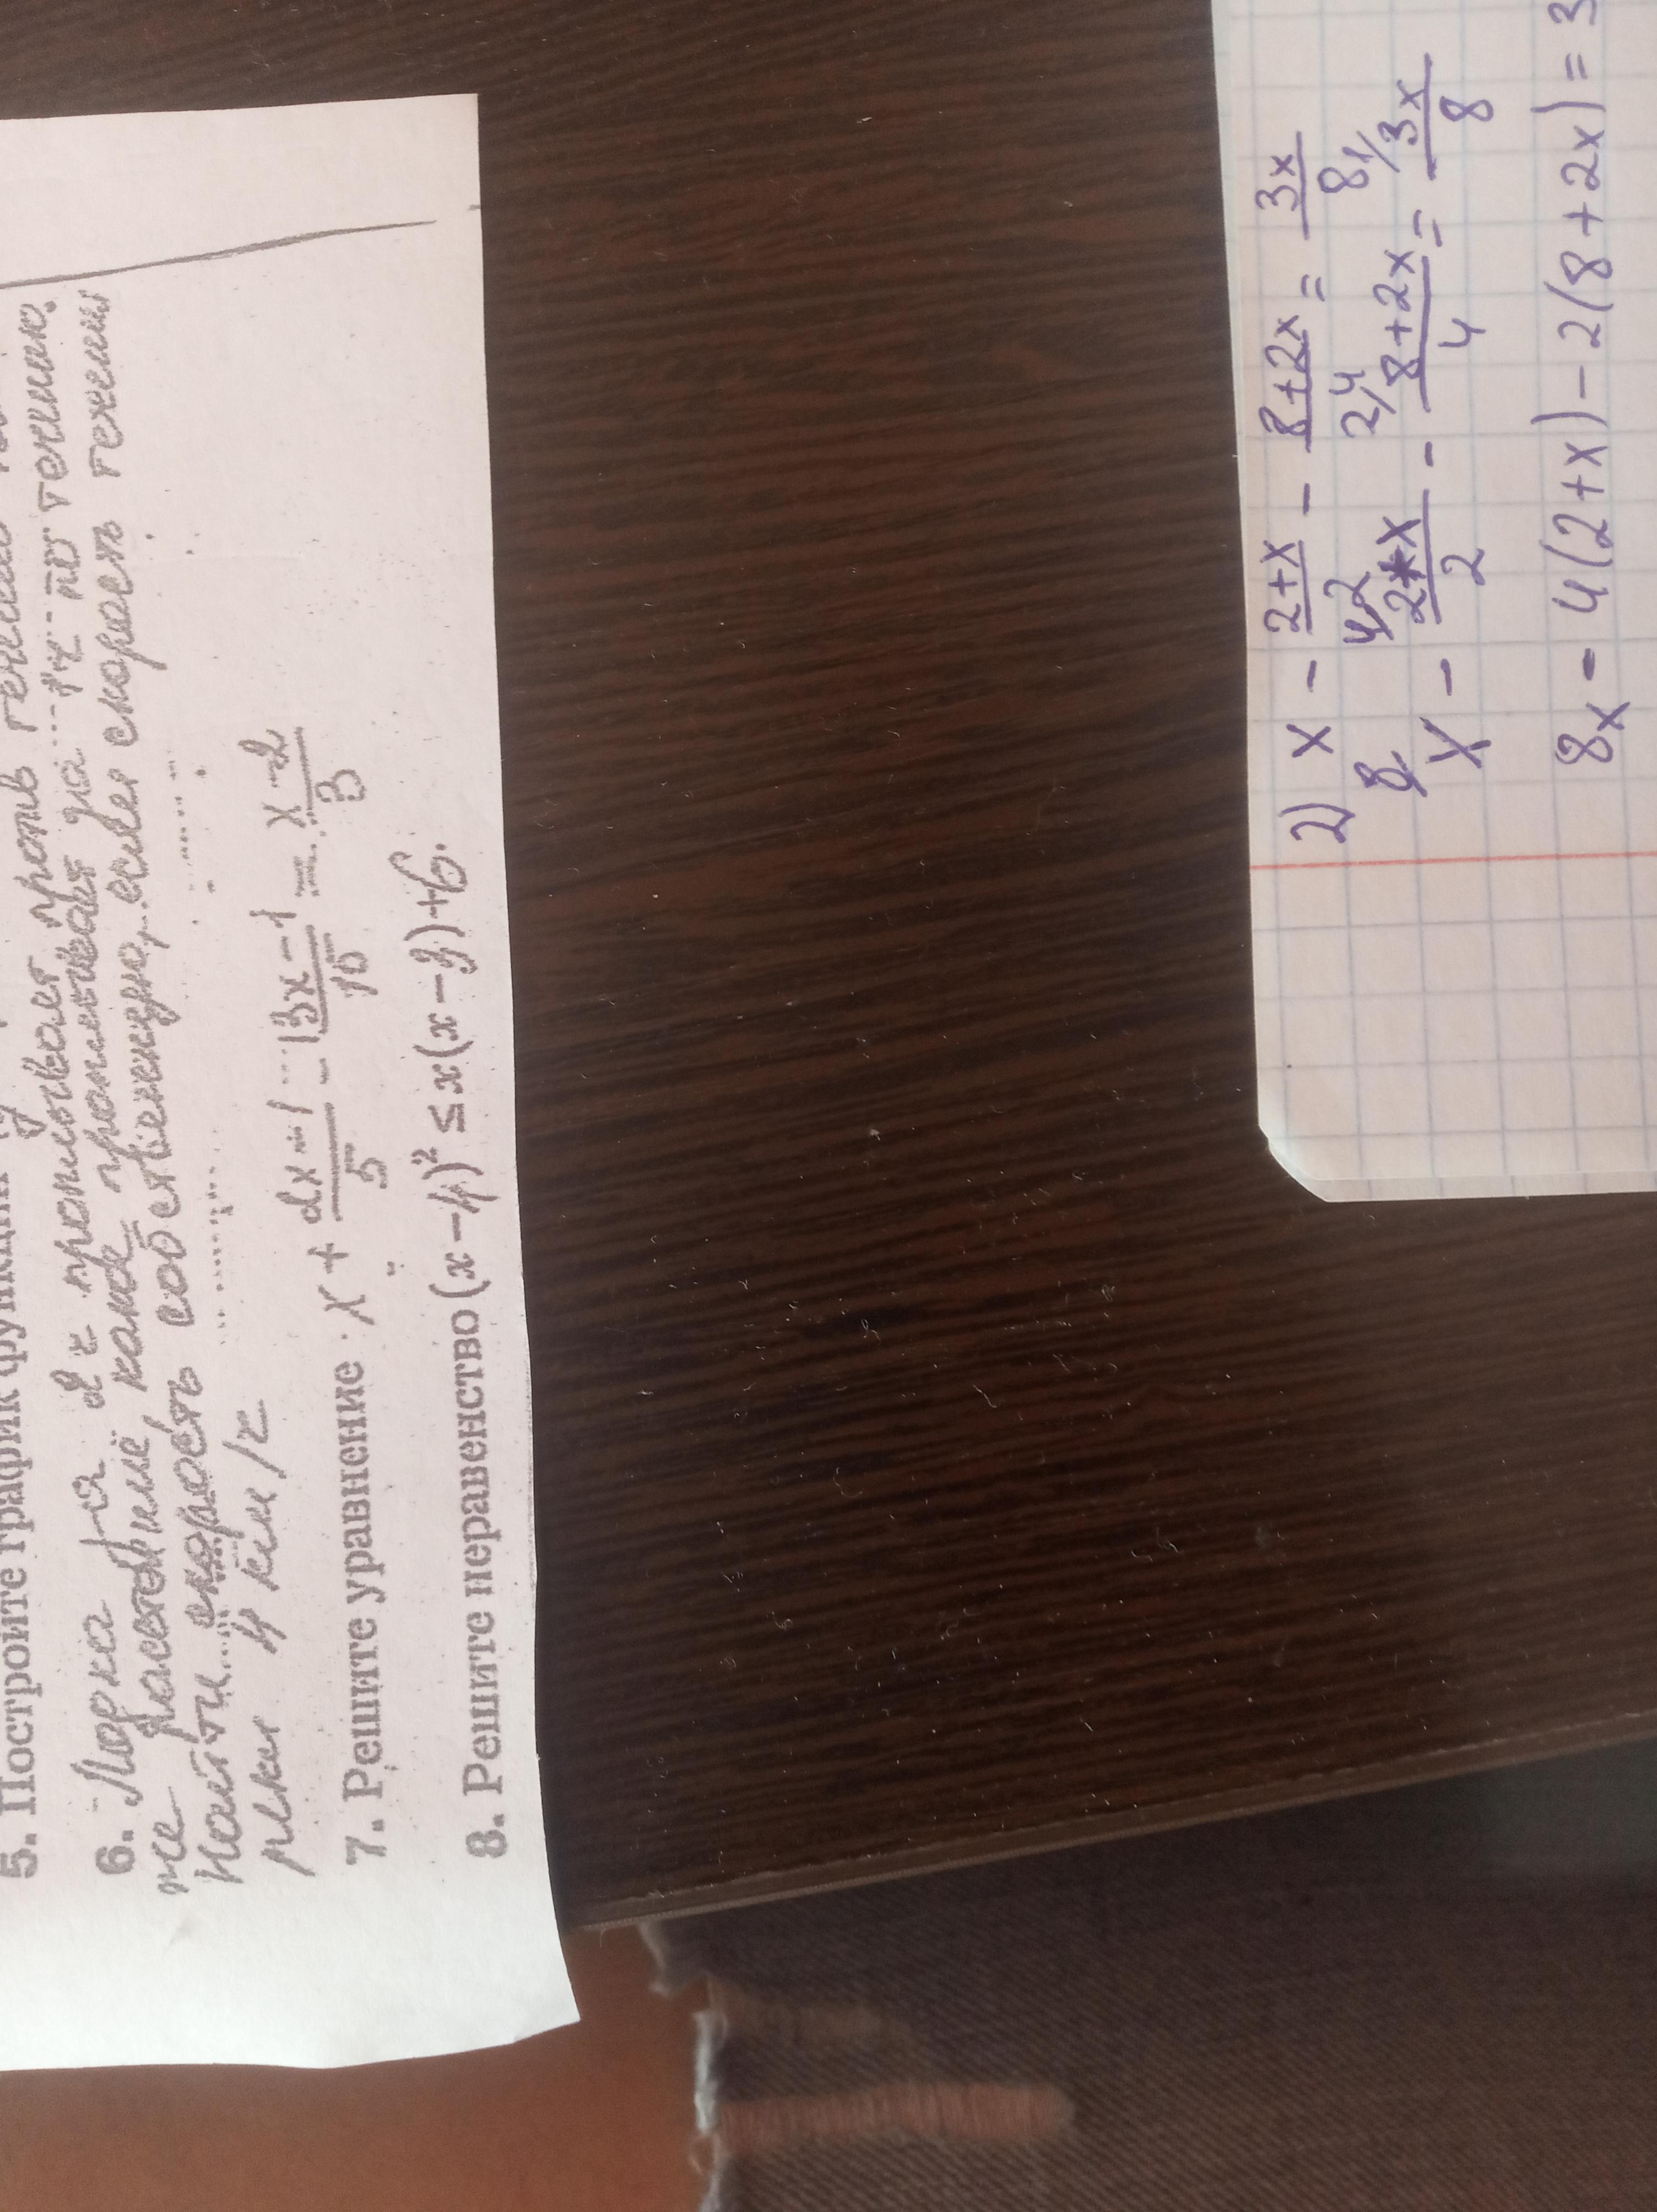 5. Постройте график функции
6. Лодка за 2 ч проплывает против течения
же расстояние, какое проплывает за 1 ч по течению.
Найти скорость собственную, если скорость течения
реки 4 км/ч
7. Решите уравнение x + (2x-1)/5 - (13x-1)/15 = (x-2)/3
8. Решите неравенство (x-4)² ≤ x(x-3)+6.
2) x - (2+x)/2 - (8+2x)/4 = 3x/8
x - (2+x)/2 - (8+2x)/4 = 3x/8
8x - 4(2+x) - 2(8+2x) = 3